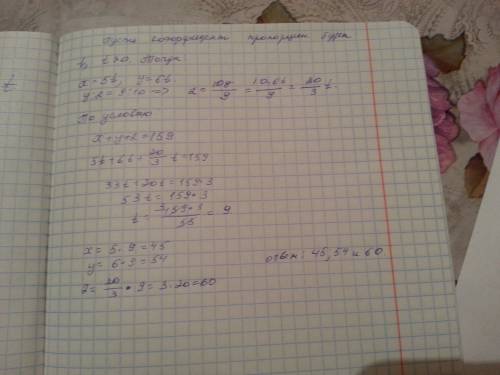 Пусть коэффициент пропорции будет
t, t>0. Тогда
x=5t, y=6t
y:z=9:10 => z=10y/9=10·6t/9=20/3 t.
По условию
x+y+z=159
5t+6t+20/3 t=159
33t+20t=159·3
53t=159·3
t=159·3/53=9
x=5·9=45
y=6·9=54
z=20/3·9=3·20=60
ответ: 45, 54 и 60